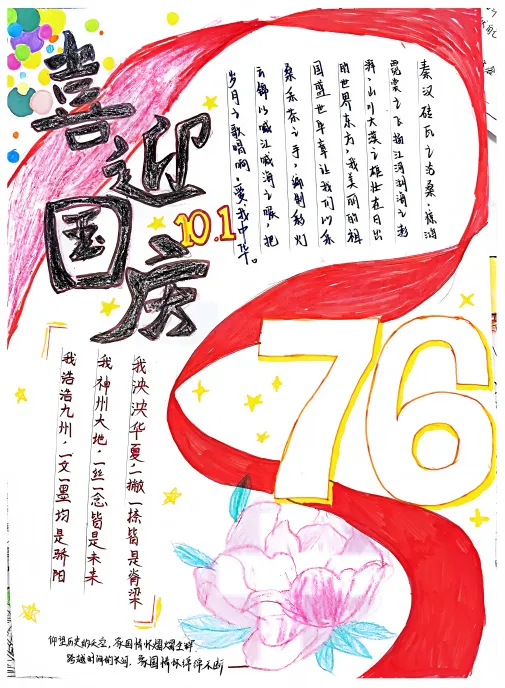 喜迎国庆
10.1
秦汉砖瓦之
霓裳之飞扬江河湖海之澎
湃,山川大漠之雄壮在日出
的世界东方,我美丽的祖
国盛世年享让我们以采
桑采茶之手,编制彩灯
云锦以喊江喊海之喉,把
岁月之歌唱响,爱我中华。
76
我泱泱华夏,一撇一捺皆是脊梁
我神州大地,一丝一念皆是未来
我浩浩九州,一文一墨均是骄阳
仰望历史的天空,家国情怀熠熠生辉
跨越时间的长河,家国情怀绵绵不断